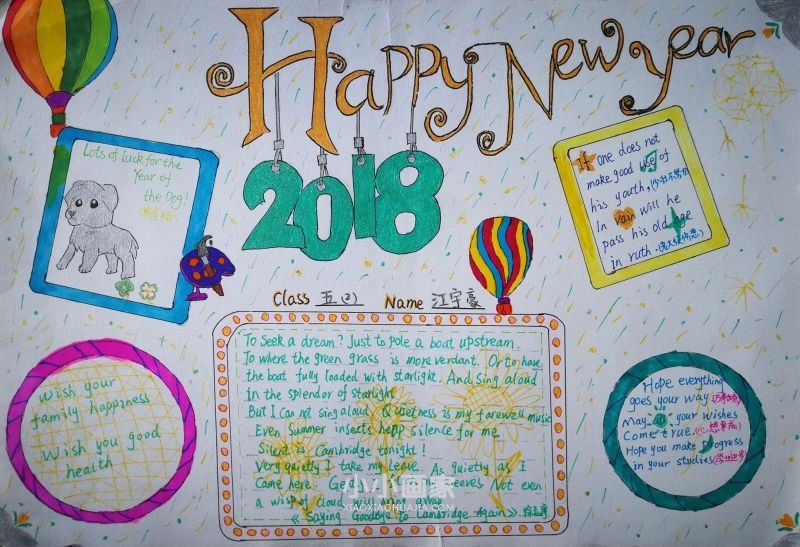 Happy New Year
2018
Lots of luck for the
Year of
the Dog!
If one does not
make good use of
his youth,
In vain will he
pass his old age
in ruth.
Class 五(2) Name 江宇豪
To Seek a dream? Just to pole a boat upstream
To where the green grass is more verdant. Or to have
the boat fully loaded with starlight. And Sing aloud
in the splendor of starlight
But I can not sing aloud Quietness is my farewell music
Even Summer insects heap silence for me.
Silent is Cambridge tonight!
Very quietly I take my leave. As quietly as I
Came here. Not even
a wisp of cloud will
《Saying Goodbye to Cambridge Again》
小小画家
XIAOXIAOHUAJIA.COM
Wish your
family happiness
Wish you good
health
Hope everything
goes your way
May all your wishes
Come true.
Hope you make progress
in your studies